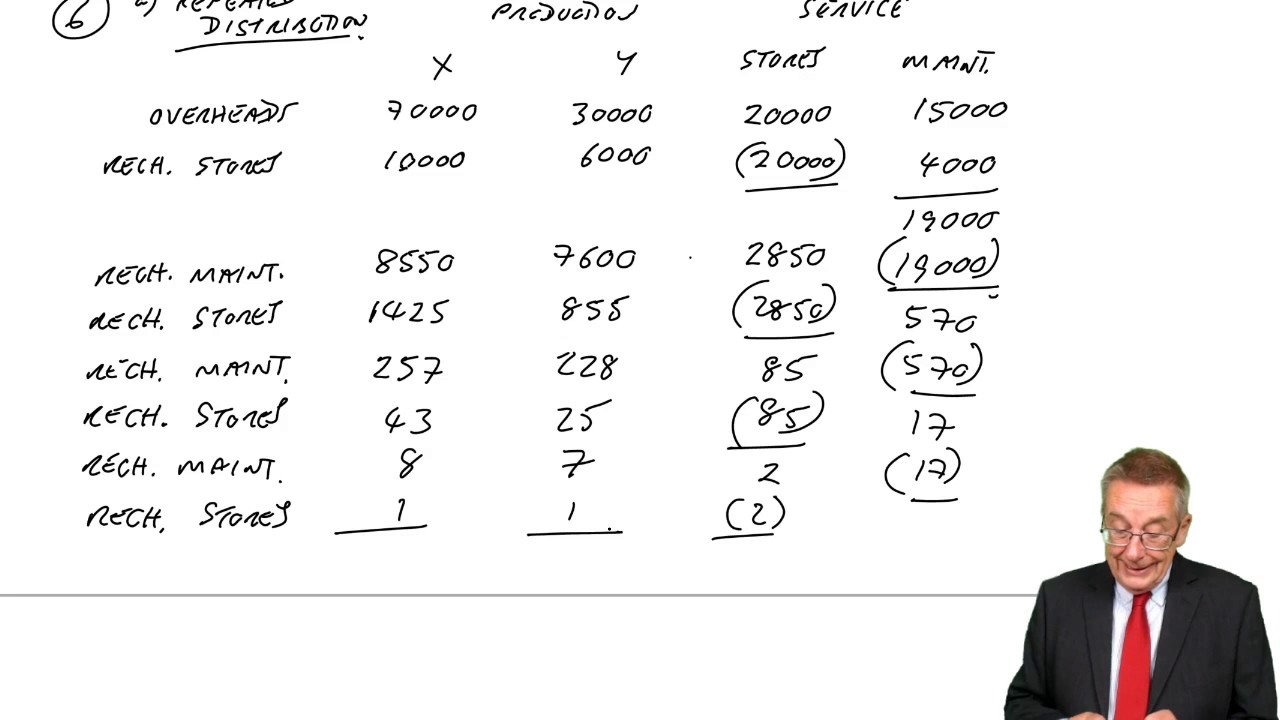 6 a) REPEATED PRODUCTION SERVICE
DISTRIBUTION.
X Y STORES MAINT.
OVERHEADS 70000 30000 20000 15000
RECH. STORES 10000 6000 (20000) 4000
19000
RECH. MAINT. 8550 7600 2850 (19000)
RECH. STORES 1425 855 (2850) 570
RECH. MAINT. 257 228 85 (570)
RECH. STORES 43 25 (85) 17
RECH. MAINT. 8 7 2 (17)
RECH. STORES 1 1 (2)